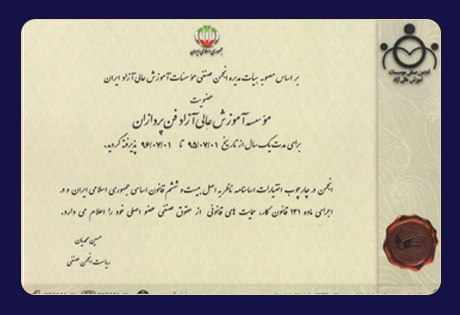 جمهوری اسلامی ایران
انجمن صنفی موسسات
آموزش عالی آزاد
بر اساس مصوبه هیأت مدیره انجمن صنفی مؤسسات آموزش عالی آزاد ایران
عضویت
مؤسسه آموزش عالی آزاد فن پردازان
برای مدت یک سال از تاریخ ۹۵/۰۷/۰۱ تا ۹۶/۰۷/۰۱ پذیرفته گردید.
انجمن در چارچوب اختیارات اساسنامه ناظر به اصل بیست و ششم قانون اساسی جمهوری اسلامی ایران و در
اجرای ماده ۱۳۱ قانون کار، حمایت های قانونی از حقوق صنفی عضو اصلی خود را اعلام می دارد.
حسین محمدیان
ریاست انجمن صنفی